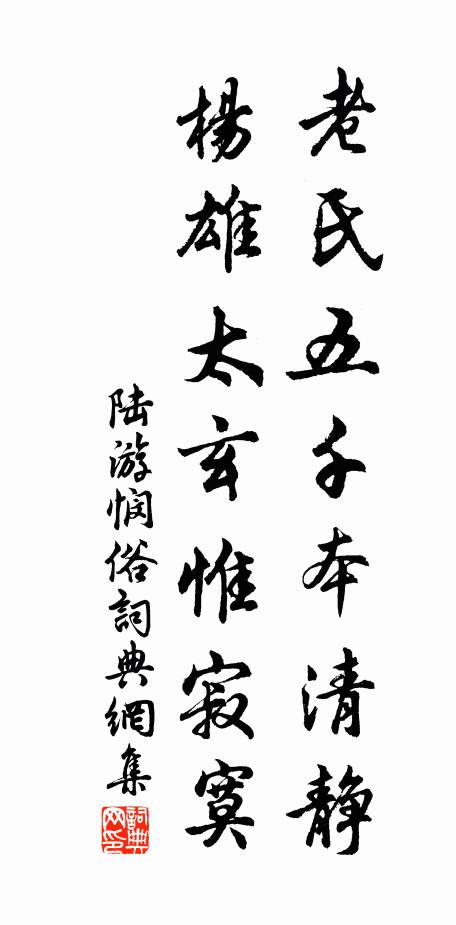 老氏五千本清静
楊雄太玄惟寂寞
陆游悯俗詞典網集
詞典网印